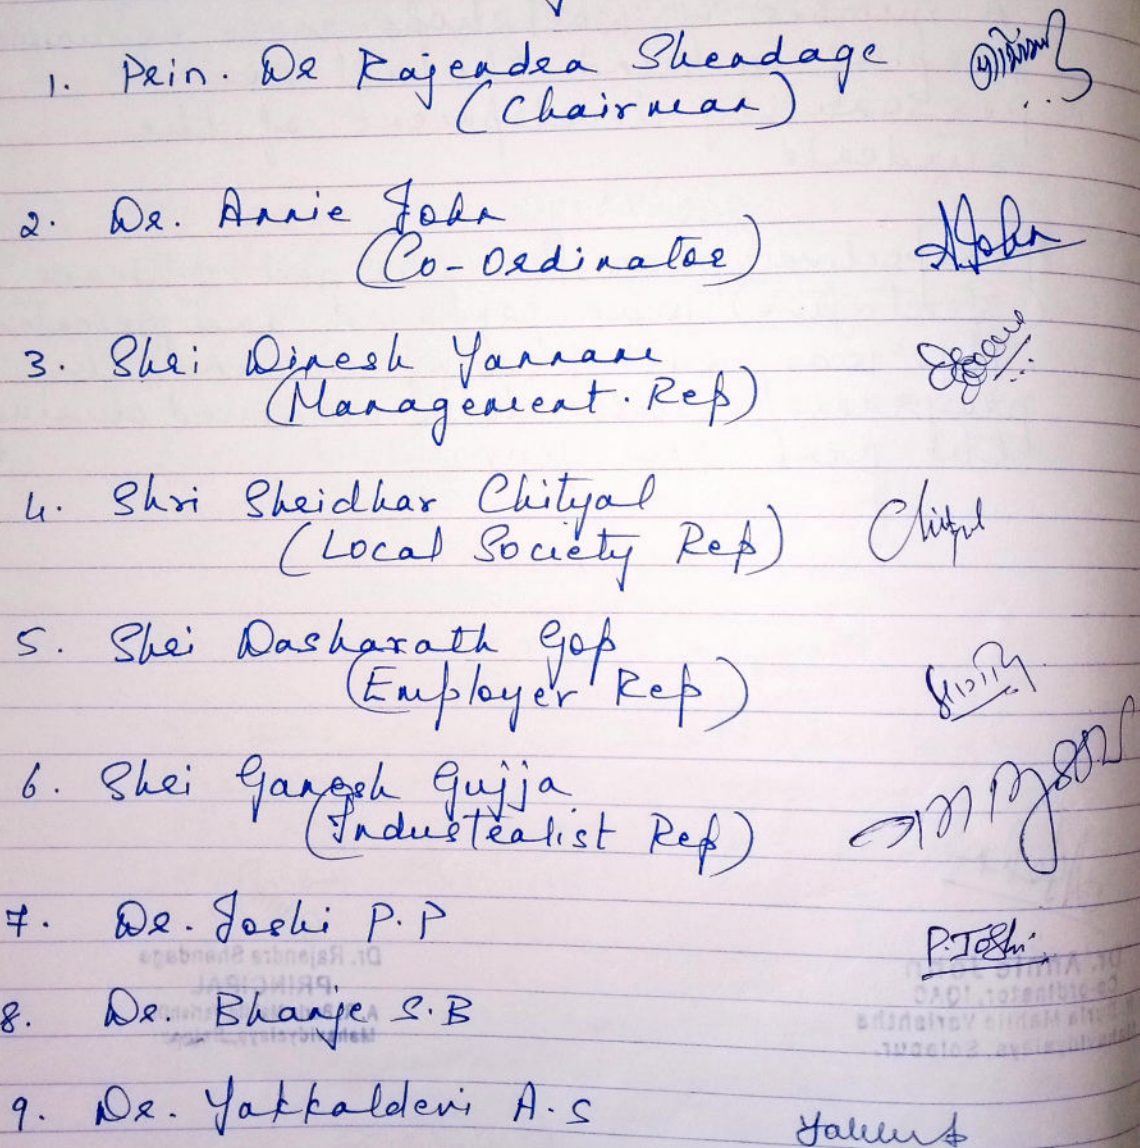 1. Prin. Dr Rajendra Shendage
(Chairman)
2. Dr. Annie John
(Co-ordinator)
A.John
3. Shri Dinesh Yannam
(Management. Rep)
4. Shri Shridhar Chityal
(Local Society Rep)
Chityal
5. Shri Dasharath Gop
(Employer Rep)
6. Shri Ganesh Gujja
(Industrealist Rep)
7. Dr. Joshi P.P
P.Joshi
Dr. Rajendra Shendage
PRINCIPAL
Dr. Annie John
Co-ordinator, IQAC
8. Dr. Bhanje S.B
9. Dr. Yakkaldevi A.S